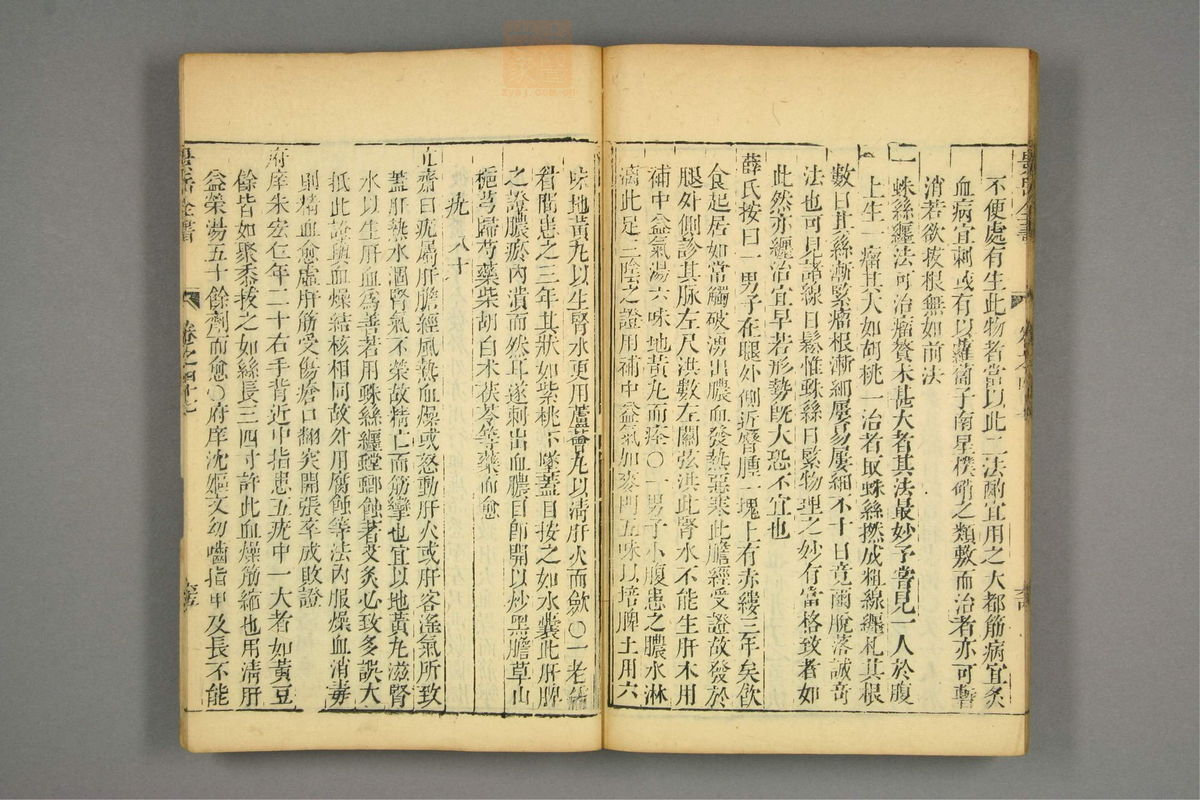 不便處有生此物者當以此二法酌宜用之大都筋病宜灸
血病宜刺或有以蘿蔔子南星樸硝之類敷而治者亦可暫
消若欲拔根無如前法
一蛛絲纏法可治瘤贅未甚大者其法最妙予嘗見一人於腹
上生一瘤其大如胡桃一治者取蛛絲撚成粗線纏札其根
數日其絲漸緊瘤根漸細屢易屢細不十日竟爾脫落誠奇
法也可見諸線日鬆惟蛛絲日緊物理之妙有當格致者如
此然亦纏治宜早若形勢旣大恐不宜也
薛氏按曰一男子在腿外側近臀腫一塊上有赤縷三年矣飮
食起居如常觸破湧出膿血發熱惡寒此膽經受證故發於
腿外側診其脉左尺洪數左關弦洪此腎水不能生肝木用
補中益氣湯六味地黃丸而痊○一男子小腹患之膿水淋
漓此足三陰之證用補中益氣加麥門五味以培脾土用六
味地黃丸以生腎水更用蘆薈丸以淸肝火而斂○一老儒
眷間患之三年其狀如紫桃下墜蓋目按之如水囊此肝脾
之證膿瘀內潰而然耳遂刺出血膿目卽開以炒黑膽草山
梔芎歸芍藥柴胡白朮茯苓等藥而愈
疣 八十一
立齋曰疣屬肝膽經風熱血燥或怒動肝火或肝客淫氣所致
蓋肝熱水涸腎氣不榮故精亡而筋攣也宜以地黃丸滋腎
水以生肝血爲善若用蛛絲纏螳螂蝕著艾灸心致多誤大
抵此證與血燥結核相同故外用腐蝕等法內服燥血消毒
則精血愈虛肝筋受傷瘡口翻突開張卒成敗證
府庠朱宏仁年二十右手背近中指患五疣中一大者如黃豆
餘皆如聚黍拔之如絲長三四寸許此血燥筋縮也用淸肝
益榮湯五十餘劑而愈○府庠沈嫗文幼嚙指甲及長不能
卷之四十七